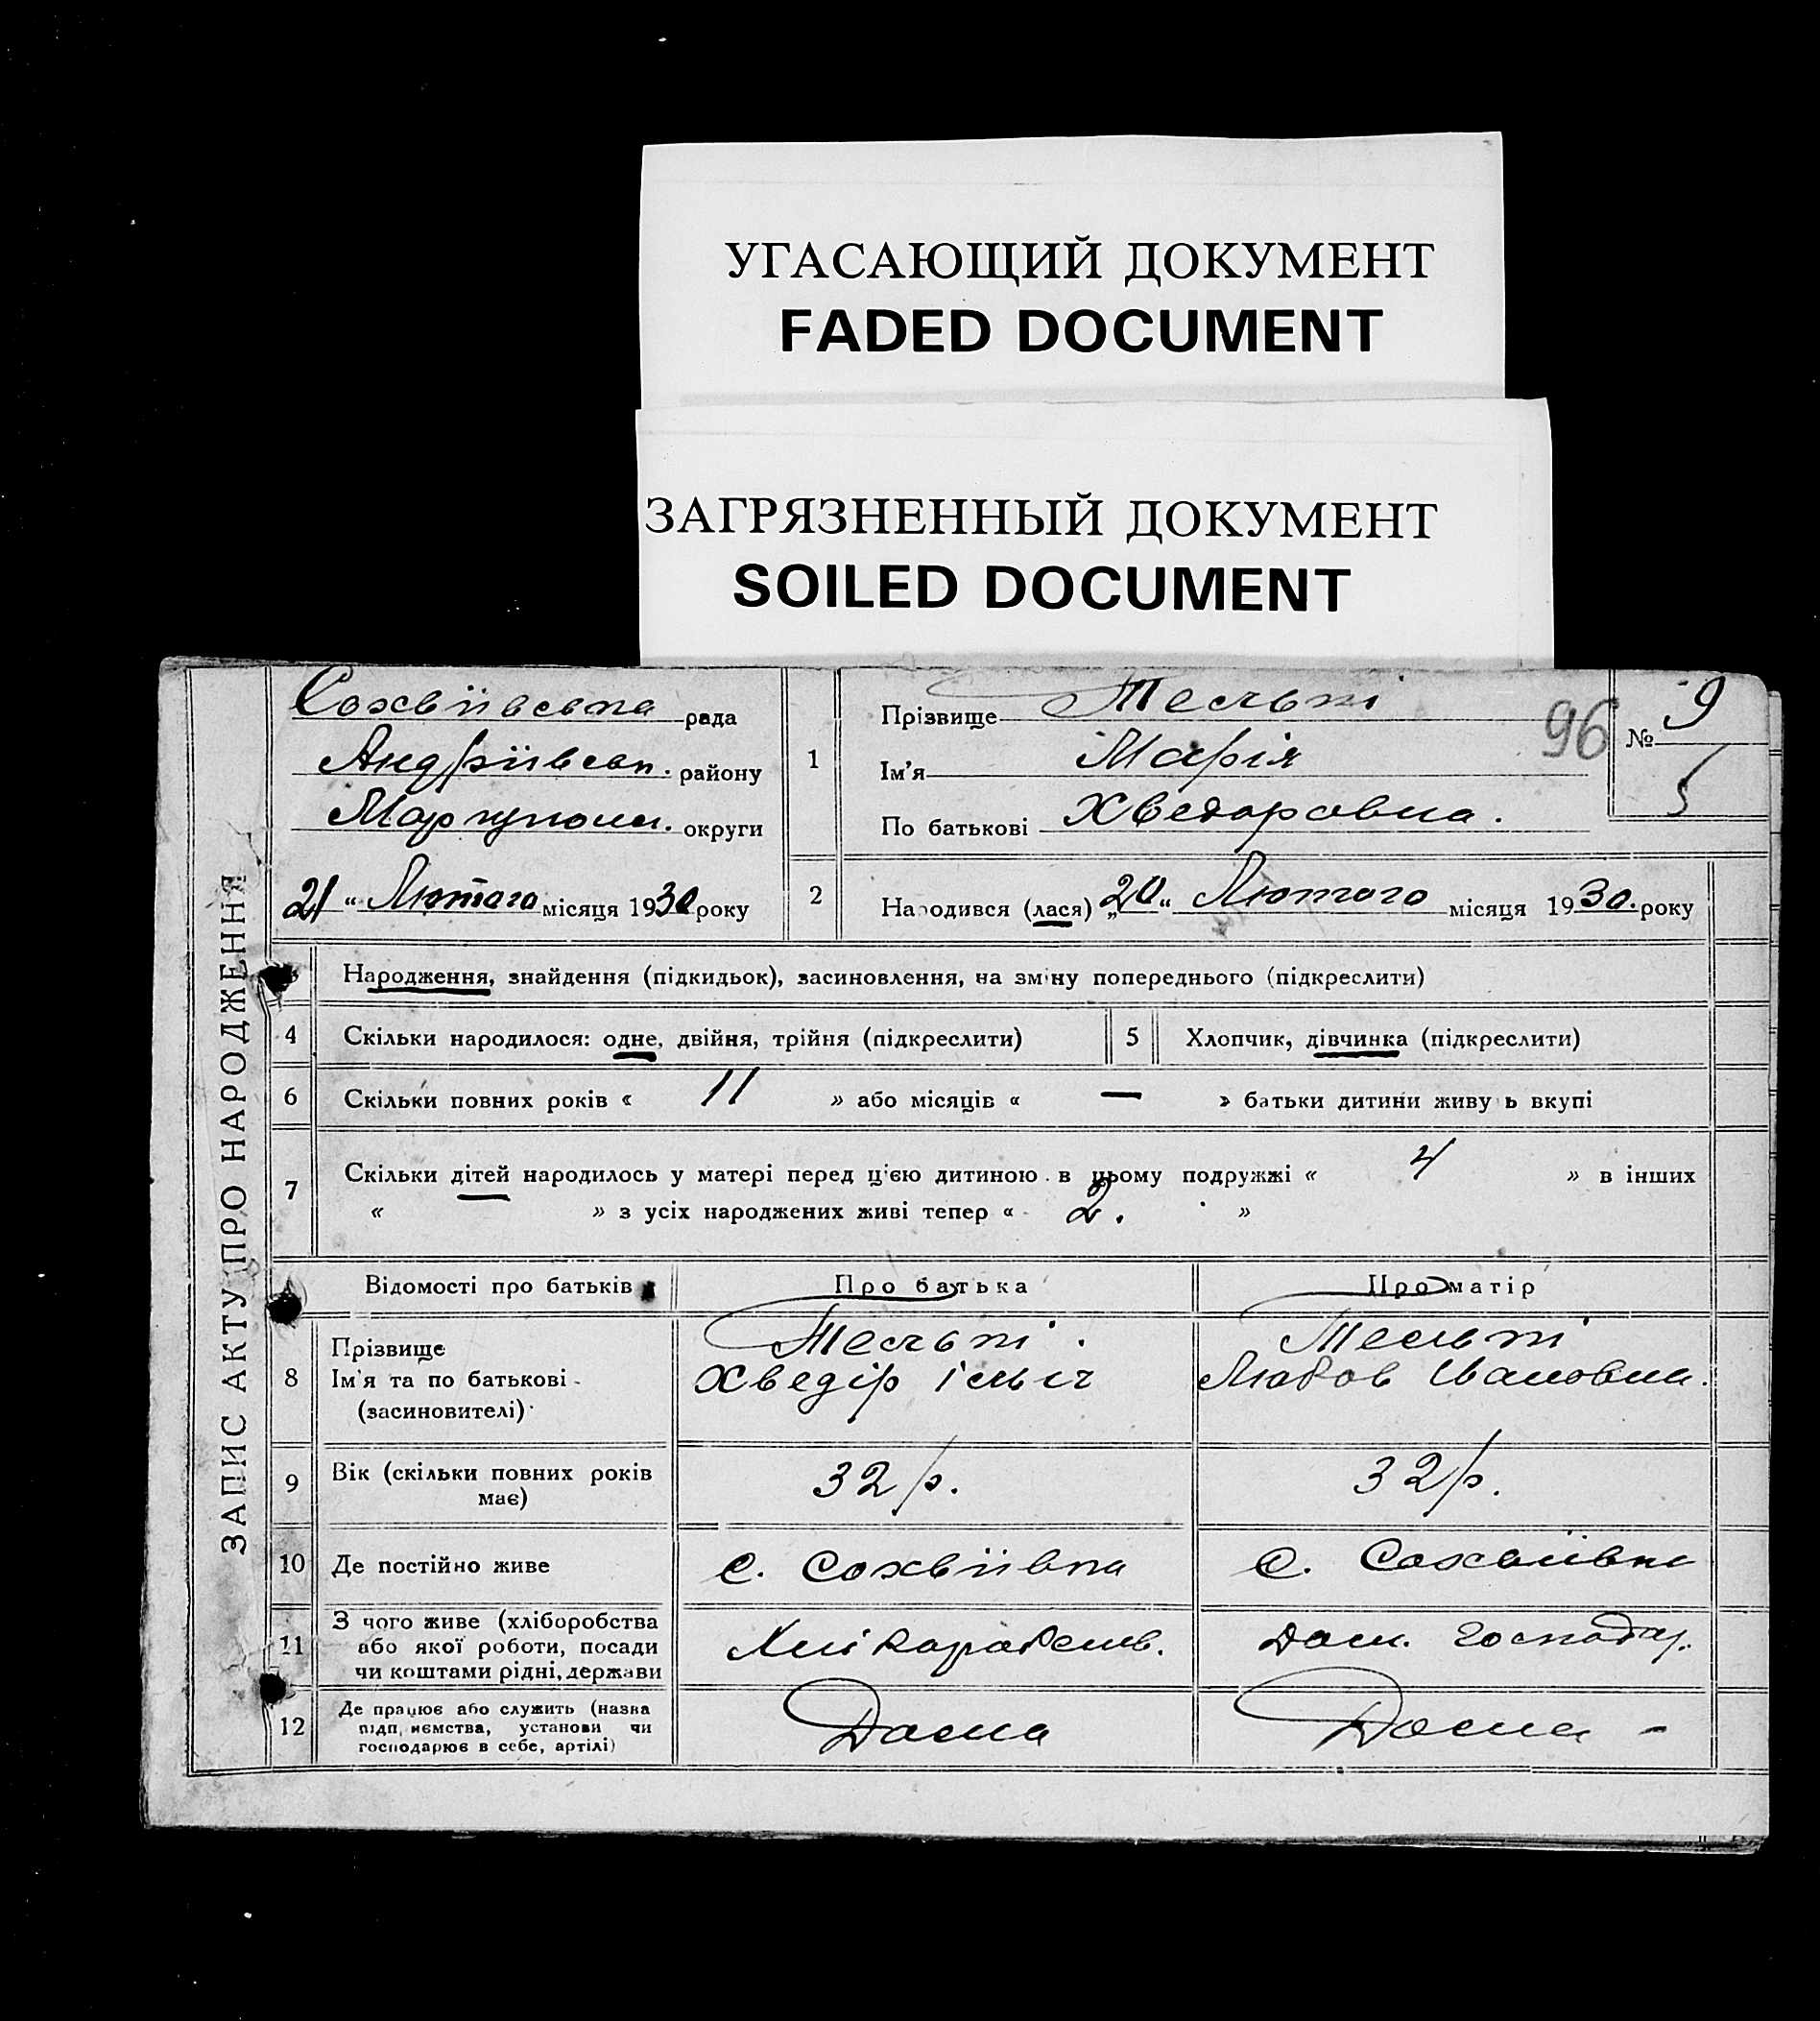 УГАСАЮЩИЙ ДОКУМЕНТ
FADED DOCUMENT
ЗАГРЯЗНЕННЫЙ ДОКУМЕНТ
SOILED DOCUMENT
ЗАПИС АКТУ ПРО НАРОДЖЕННЯ
Сохвіївська рада
Андріївськ. району
Маріупольс. округи
21 " Лютого місяця 1930 року
1
Прізвище
Ім'я Марія
По батькові Хведоровна.
96
№ 9
2
Народився (лася) „20" Лютого місяця 1930. року
Народження, знайдення (підкидьок), засиновлення, на зміну попереднього (підкреслити)
4 Скільки народилося: одне, двійня, трійня (підкреслити)
5 Хлопчик, дівчинка (підкреслити)
6 Скільки повних років « 11 » або місяців « — » батьки дитини живуть вкупі
7 Скільки дітей народилось у матері перед цією дитиною в цьому подружжі « 4 » в інших
« » з усіх народжених живі тепер « 2. »
Відомості про батьків
Про батька
Про матір
8 Прізвище
Ім'я та по батькові
(засиновителі)
Хведір Ільїч
Любов Івановна.
9 Вік (скільки повних років
має)
32 р.
32 р.
10 Де постійно живе
с. Сохвіївка
с. Сохвіївка
11 З чого живе (хліборобства
або якої роботи, посади
чи коштами рідні, держави
Хліборобств.
Дом. господар.
12 Де працює або служить (назва
підприємства, установи чи
господарює в себе, артілі)
Дома
Дома -